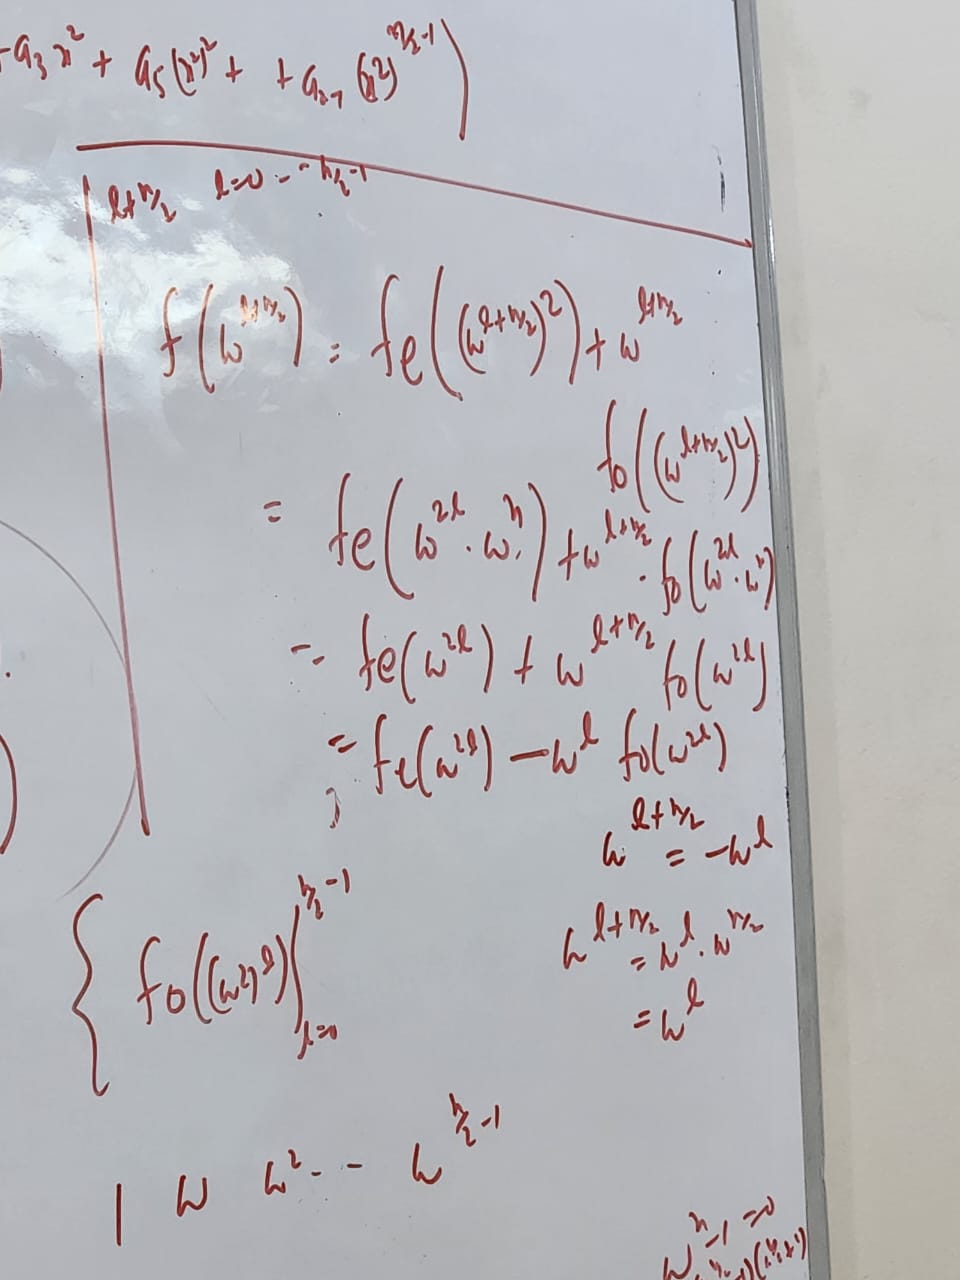 -a₃x² + a₅(x²)² + + aₙ₋₁ (x²)^{n/2-1})
l+n/2 l=0 - - n/2-1
f(ω^{l+n/2}) = fe((ω^{l+n/2})²) + ω^{l+n/2}
fo((ω^{l+n/2})²)
= fe(ω^{2l} . ω^n) + ω^{l+n/2} . fo(ω^{2l} . ω^n)
= fe(ω^{2l}) + ω^{l+n/2} fo(ω^{2l})
= fe(ω^{2l}) - ω^l fo(ω^{2l})
ω^{l+n/2} = -ω^l
{ fo((ω²)^l) |_{l=0}^{n/2-1}
ω^{l+n/2} = ω^l . ω^{n/2}
= ω^l
1 ω ω² - - ω^{n/2-1}
ω^n - 1 = 0